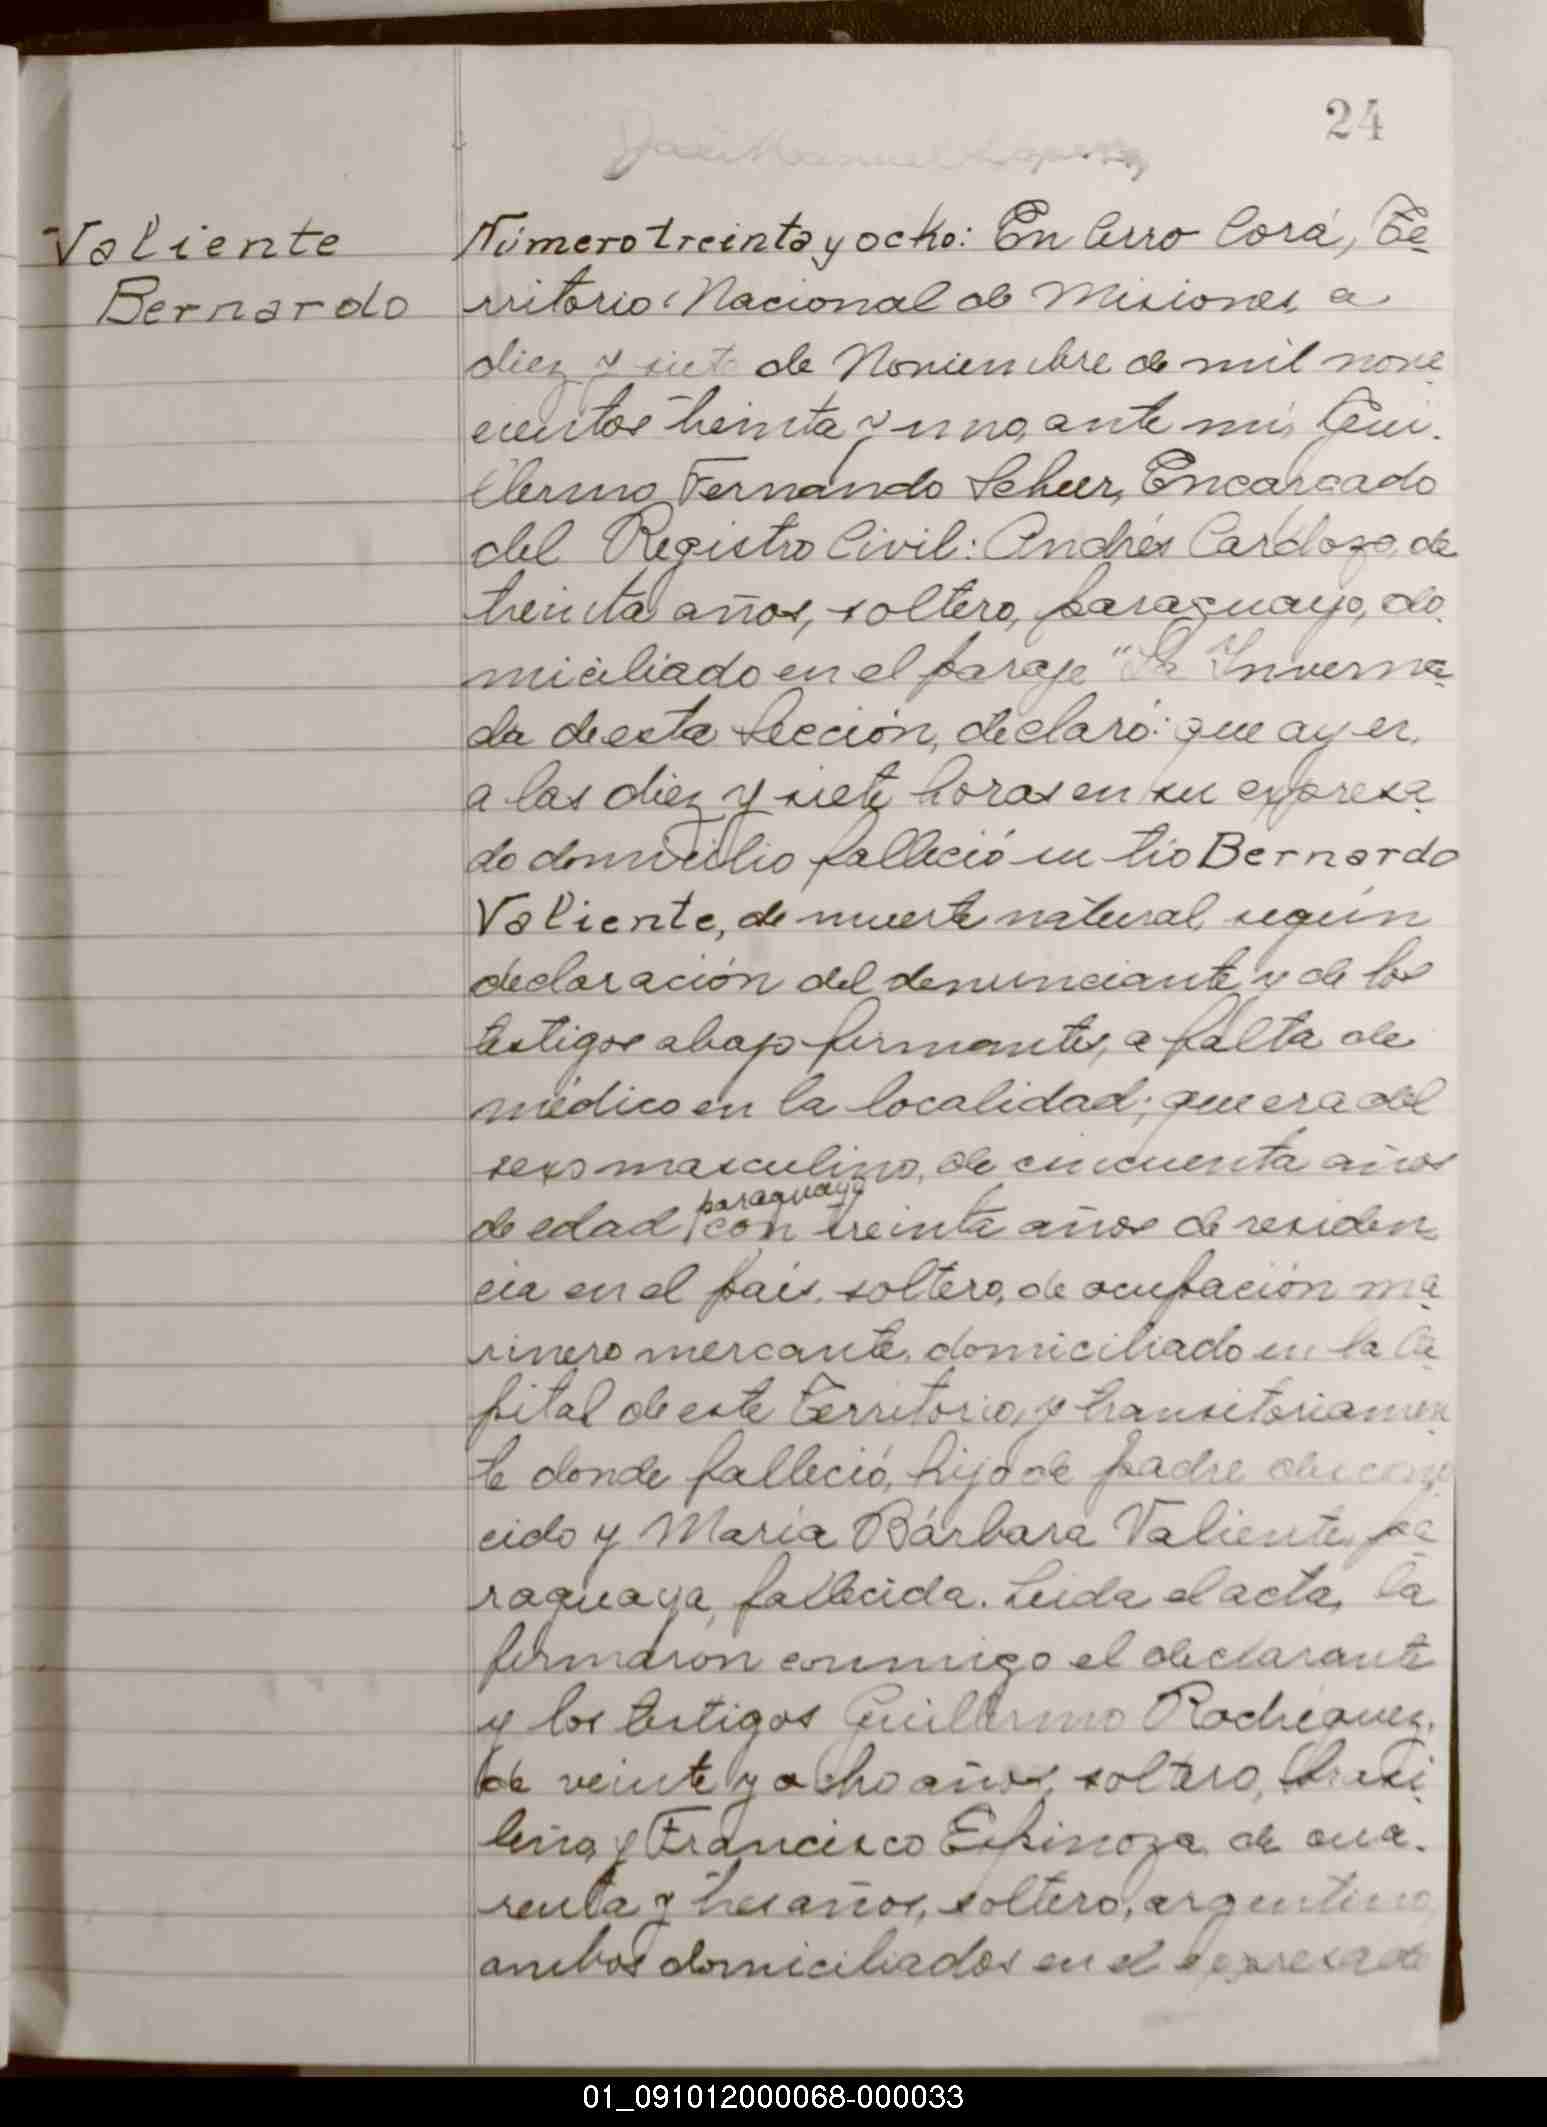 24
Valiente
Bernardo
Número treinta y ocho: En Cerro Corá, Te-
rritorio Nacional de Misiones, a
diez y siete de Noviembre de mil nove-
cientos treinta y uno, ante mi, Gui-
llermo Fernando Scheer, Encargado
del Registro Civil: Andrés Cardozo, de
treinta años, soltero, paraguayo, do-
miciliado en el paraje "La Inverna-
da de esta Sección, declaró: que ayer,
a las diez y siete horas en su expresa-
do domicilio falleció su tio Bernardo
Valiente, de muerte natural, según
declaración del denunciante y de los
testigos abajo firmantes, a falta de
médico en la localidad; que era del
sexo masculino, de cincuenta años
paraguayo
de edad, con treinta años de residen-
cia en el país, soltero, de ocupación ma-
rinero mercante, domiciliado en la Ca-
pital de este Territorio, y transitoriamen-
te donde falleció, hijo de padre descono-
cido y María Bárbara Valiente, pa-
raguaya, fallecida. Leida el acta, la
firmaron conmigo el declarante
y los testigos Guillermo Rodriguez,
de veinte y ocho años, soltero, brasi-
leño, y Francisco Espinoza, de cua-
renta y tres años, soltero, argentino,
ambos domiciliados en el expresado
01_091012000068-000033